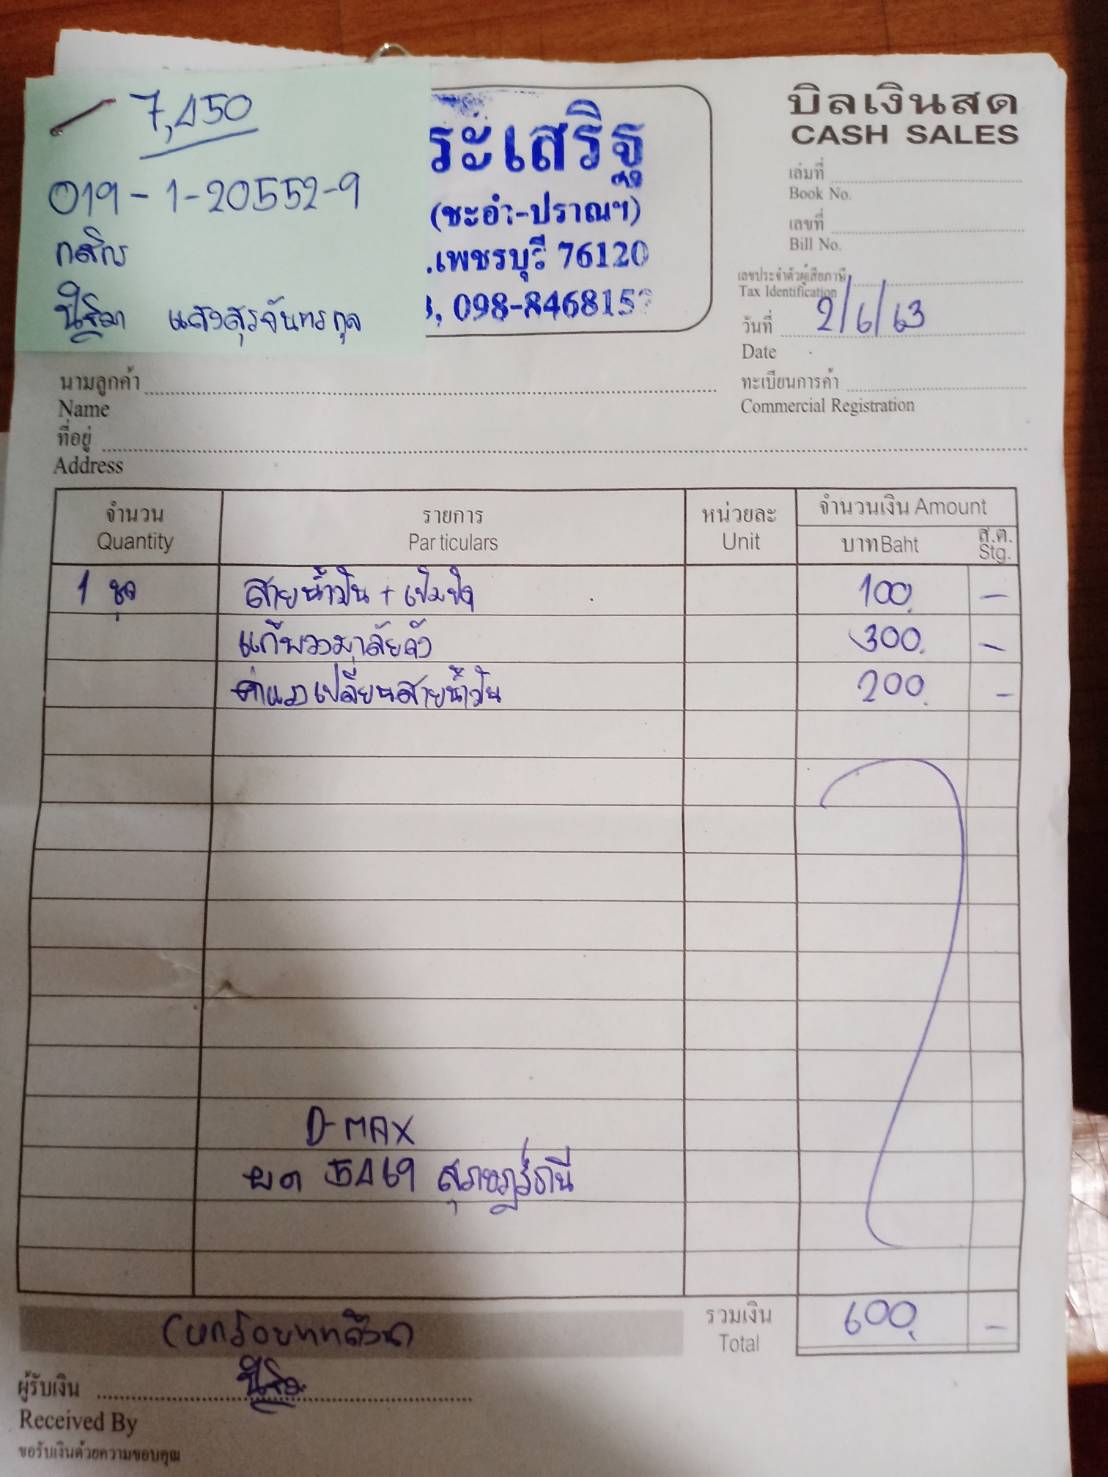 7,450
019-1-20552-9
กสิกร
นิฐิมา แสงสุรจันทรกุล
ระเสริฐ
(ชะอำ-ปราณฯ)
.เพชรบุรี 76120
, 098-846815
บิลเงินสด
CASH SALES
เล่มที่
Book No.
เลขที่
Bill No.
เลขประจำตัวผู้เสียภาษี
Tax Identification
วันที่ 2/6/63
Date
นามลูกค้า
Name
ทะเบียนการค้า
Commercial Registration
ที่อยู่
Address
จำนวน รายการ หน่วยละ จำนวนเงิน Amount
Quantity Particulars Unit บาท Baht ส.ต. Stg.
1 ชุด สายน้ำมัน + เข็มขัด 100 –
แก้พวงมาลัยตัว 300 –
ค่าแรงเปลี่ยนสายน้ำมัน 200 –
D-MAX
ผก 5469 สุราษฎร์ธานี
(หกร้อยบาทถ้วน) รวมเงิน 600 –
Total
ผู้รับเงิน
Received By
ขอรับเงินด้วยความขอบคุณ